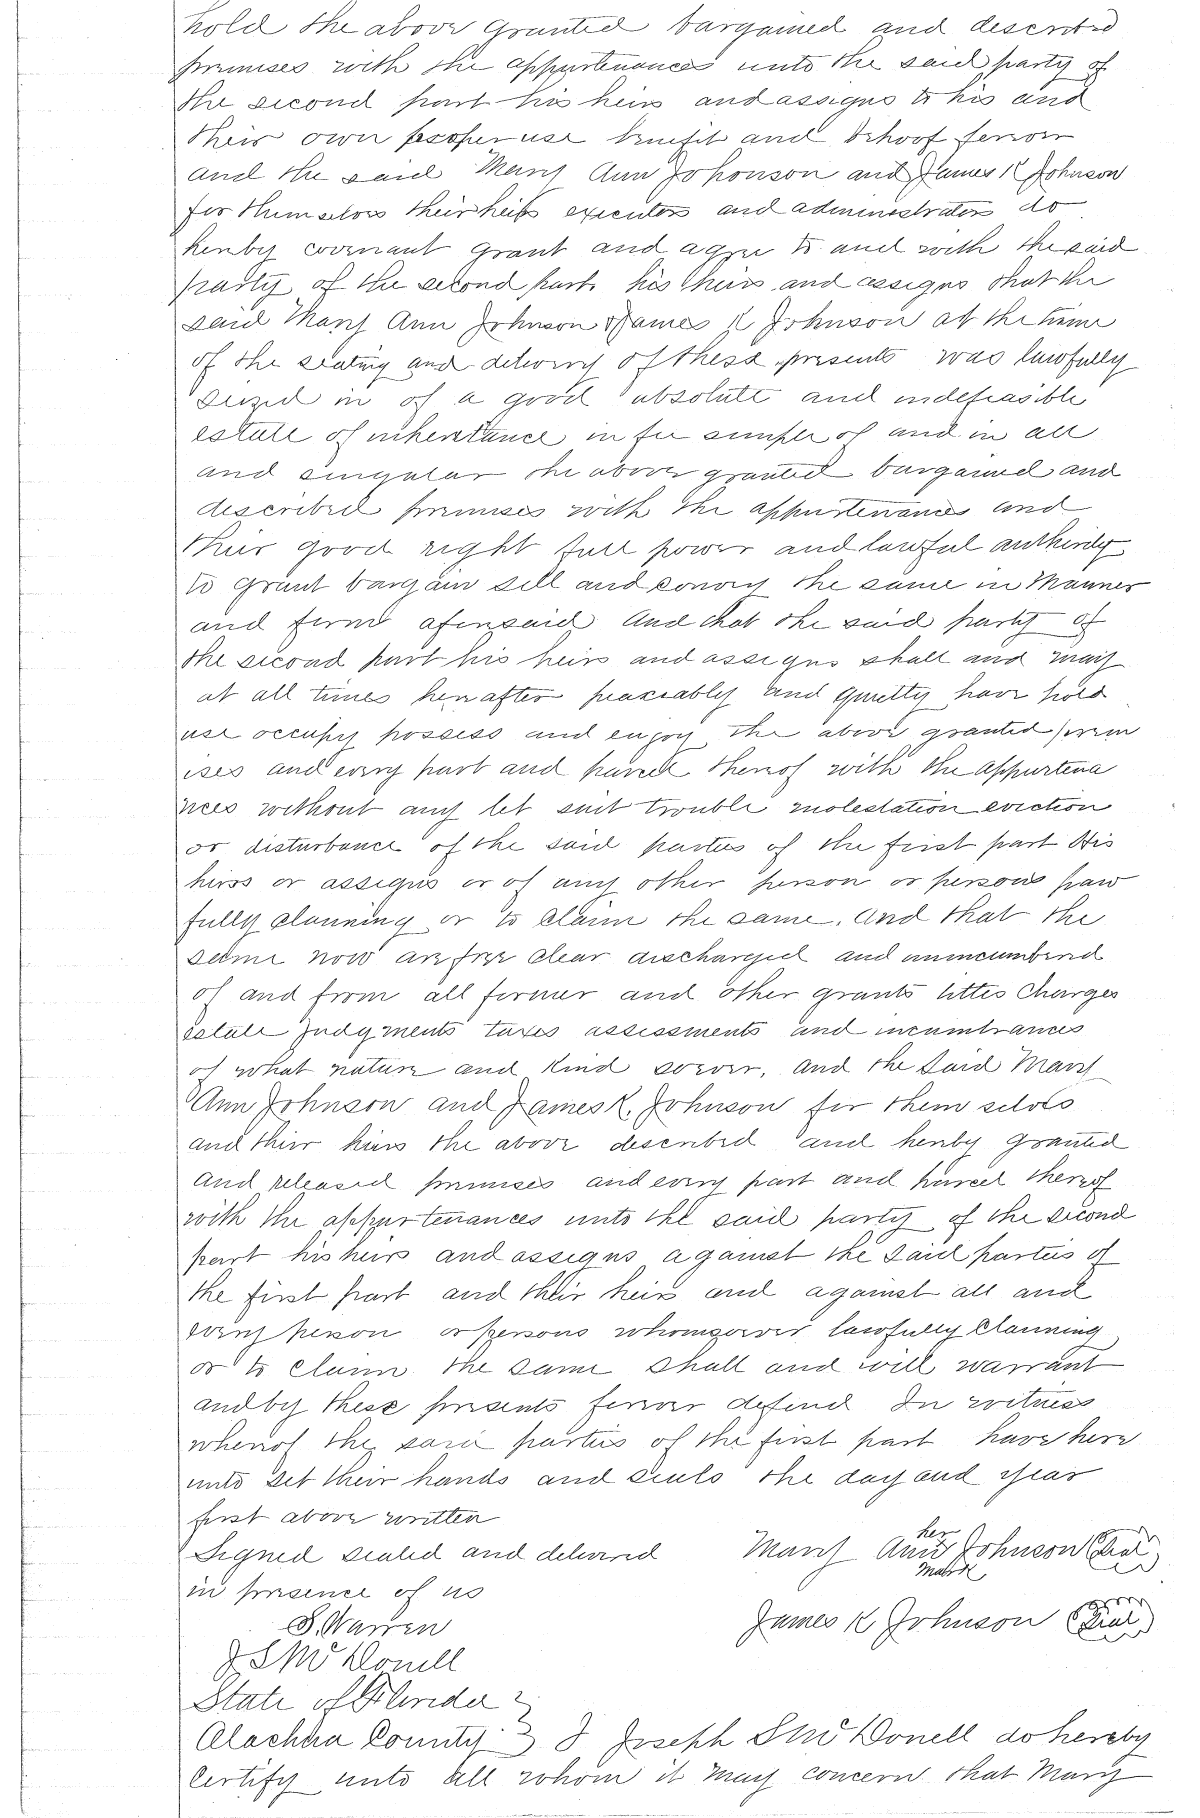 hold the above granted bargained and described
premises with the appurtenances unto the said party of
the second part his heirs and assigns to his and
their own proper use benefit and behoof ferever
and the said Mary Ann Johonson and James K Johnson
for themselves their heirs executors and administrators do
hereby covenant grant and agree to and with the said
party of the second part his heirs and assigns that the
said Mary Ann Johnson & James K Johnson at the time
of the sealing and delivery of these presents was lawfully
seized in of a good absolute and indefeasible
estate of inheritance in fee simple of and in all
and singular the above granted bargained and
described premises with the appurtenances and
their good right full power and lawful authority
to grant bargain sell and convey the same in Manner
and form aforesaid And that the said party of
the second part his heirs and assigns shall and may
at all times hereafter peaceably and quietly have hold
use occupy possess and enjoy the above granted prem
ises and every part and parcel thereof with the Appurtena
nces without any let suit trouble molestation eviction
or disturbance of the said parties of the first part His
heirs or assigns or of any other person or persons law
fully claiming or to claim the same. And that the
same now are free clear discharged and unincumbered
of and from all former and other grants titles Charges
estate judgments taxes assessments and incumbrances
of what nature and kind soever. And the said Mary
Ann Johnson and James K. Johnson for them selves
and their heirs the above described and hereby granted
And released premises and every part and parcel thereof
with the appurtenances unto the said party of the second
part his heirs and assigns against the said parties of
the first part and their heirs and against all and
every person or persons whomsoever lawfully claiming
or to claim the same shall and will warrant
and by these presents forever defend In witness
whereof the said parties of the first part have here
unto set their hands and seals the day and year
first above written
Signed sealed and delivered Mary Ann her mark Johnson (Seal)
in presence of us
S. Warren James K Johnson (Seal)
J S McDonell
State of Florida
Alachua County I Joseph S McDonell do hereby
Certify unto all whom it may concern that Mary